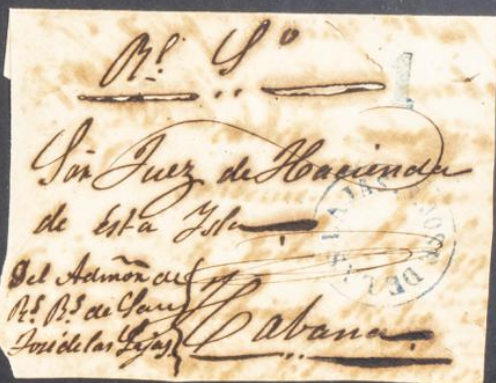 Rl. So
1
Sōr Juez de Hacienda
de esta Ysla
Del Admōn de
Rs. Rs. de San
José de las Lajas
Habana
JOSE DE LAS LAJAS